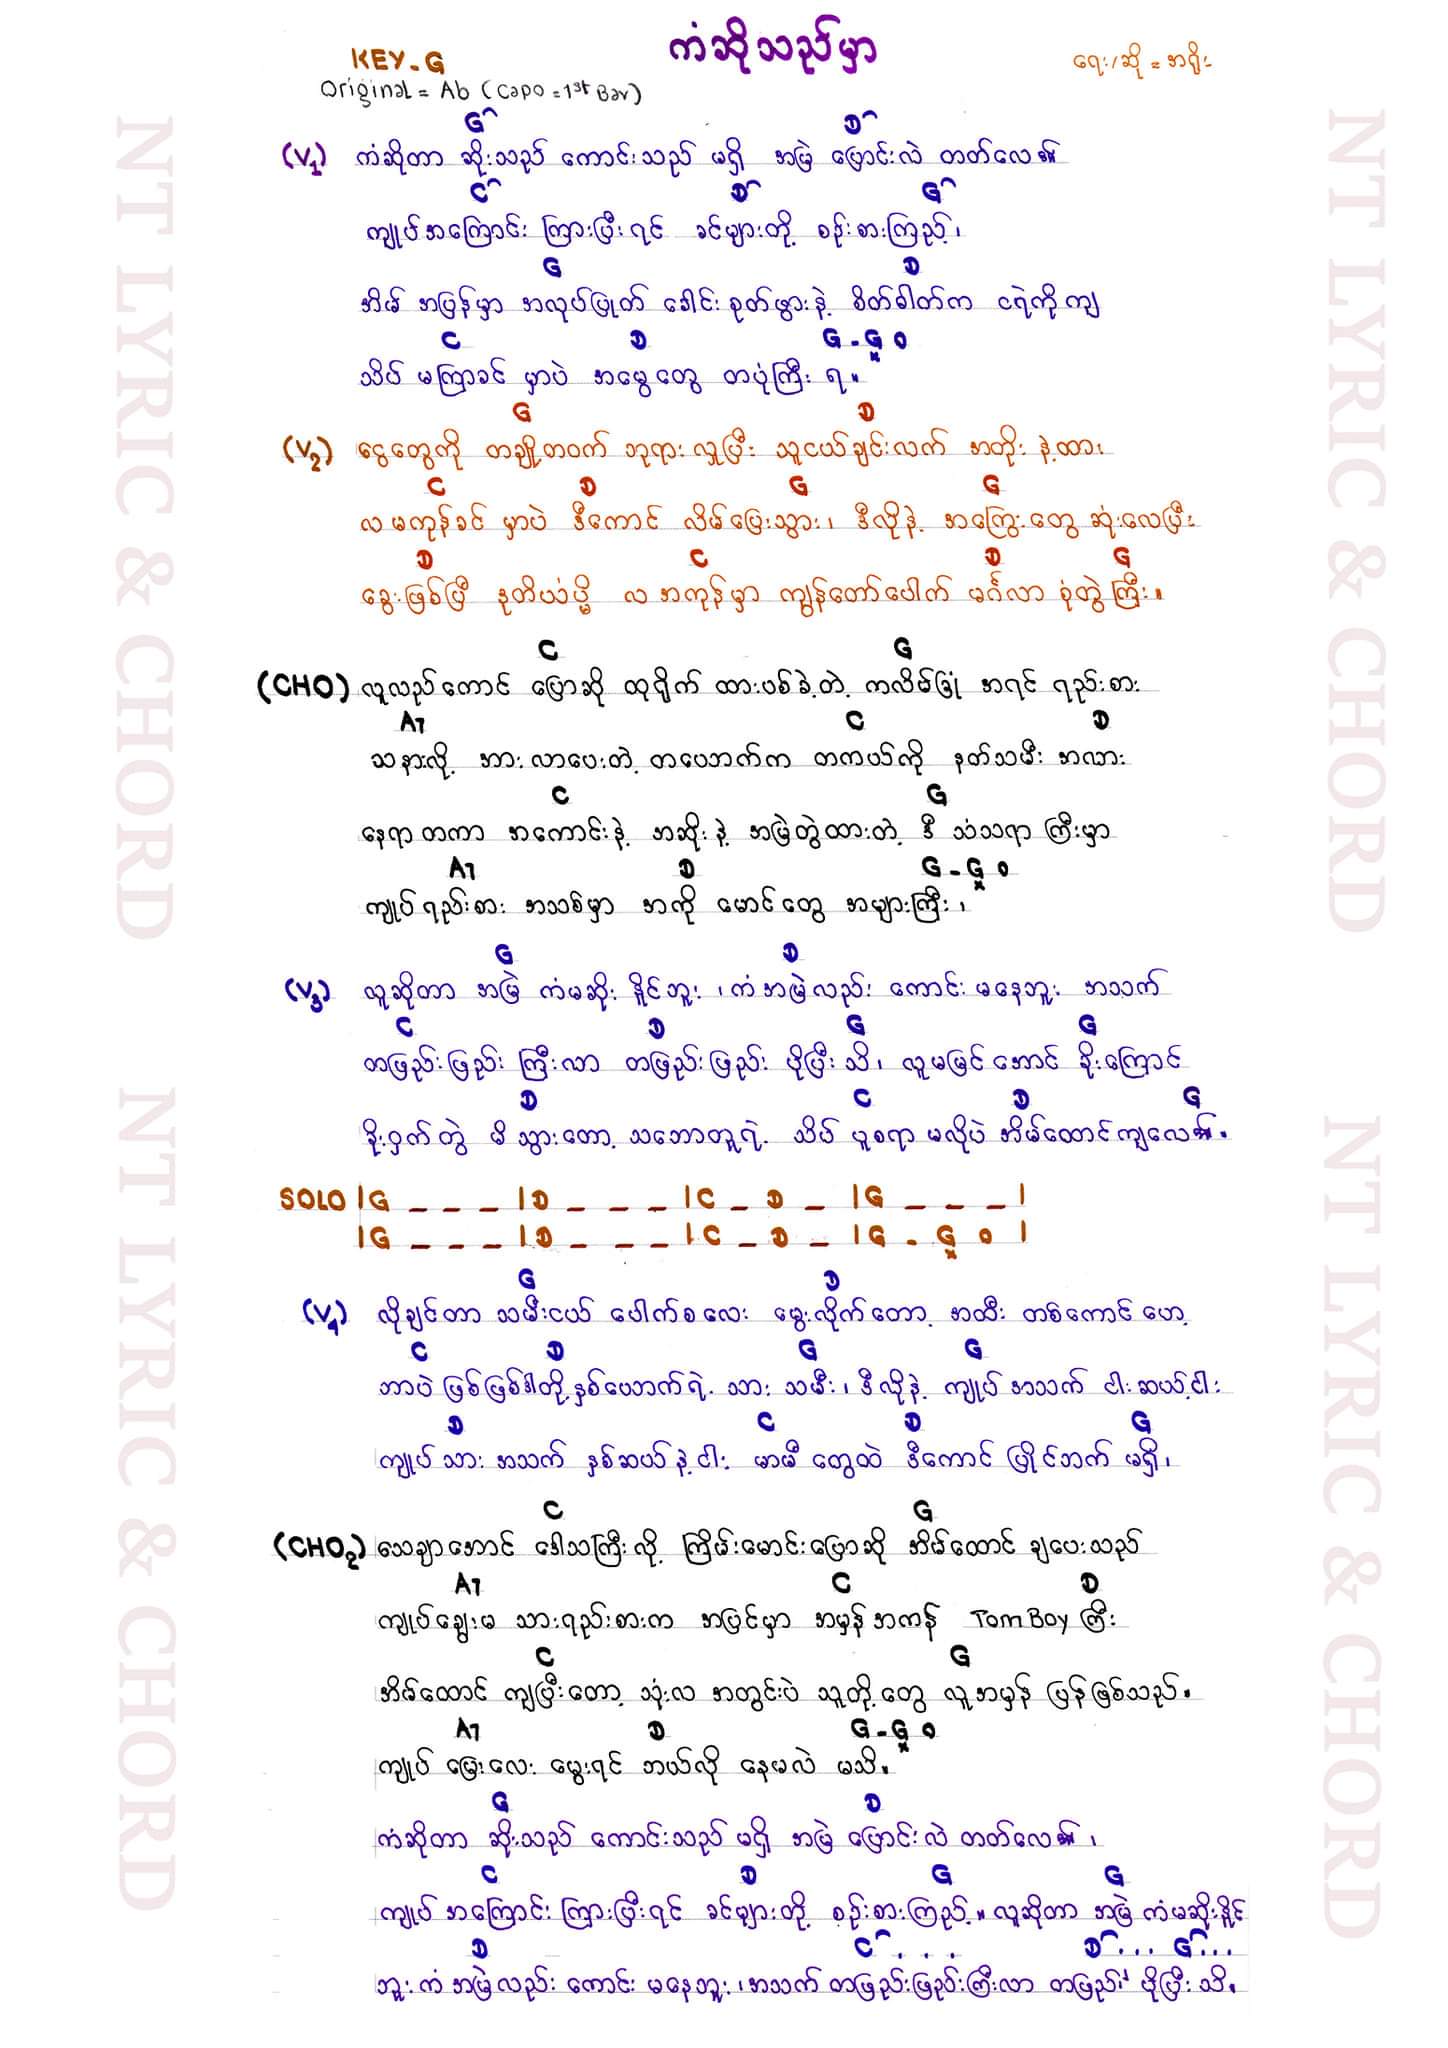 ကံဆိုသည်မှာ
KEY-G
ရေး/ဆို = အရိုး
Original = Ab (Capo = 1st Bar)
G D
(V1) ကံဆိုတာ ဆိုးသည် ကောင်းသည် မရှိ အမြဲ ပြောင်းလဲ တတ်လေ၏
C D G
ကျုပ်အကြောင်း ကြားပြီးရင် ခင်များတို့ စဉ်းစားကြည့်၊
G D
အိမ် အပြန်မှာ အလုပ်ပြုတ် ခေါင်းစုတ်ဖွားနဲ့ စိတ်ဓါတ်က ငရဲကိုကျ
C D G - G x 0
သိပ် မကြာခင် မှာပဲ အမွေတွေ တပုံကြီး ရ။
G D
(V2) ငွေတွေကို တချို့တဝက် ဘုရားလှူပြီး သူငယ်ချင်းလက် အတိုး နဲ့ထား
C D G G
လ မကုန်ခင် မှာပဲ ဒီကောင် လိမ်ပြေးသွား၊ ဒီလိုနဲ့ အကြွေးတွေ ဆုံးလေပြီး
D C D G
ခွေးဖြစ်ပြီ ဒုတိယံပ္မိ လ အကုန်မှာ ကျွန်တော်ပေါက် မင်္ဂလာ စုံတွဲကြီး။
C G
(CHO) လူလည်ကောင် ပြောဆို ထုရိုက် ထားပစ်ခဲ့တဲ့ ကလိမ်ခြုံ အရင် ရည်းစား
A7 C D
သနားလို့ အားလာပေးတဲ့ တပေဘက်က တကယ်ကို နတ်သမီး အလား
C G
နေရာတကာ အကောင်းနဲ့ အဆိုးနဲ့ အမြဲတွဲထားတဲ့ ဒီ သံသရာ ကြီးမှာ
A7 D G - G x 0
ကျုပ်ရည်းစား အသစ်မှာ အကို မောင်တွေ အများကြီး၊
G D
(V3) လူဆိုတာ အမြဲ ကံမဆိုး နိူင်ဘူး ၊ကံအမြဲလည်း ကောင်းမနေဘူး အသက်
C D G G
တဖြည်းဖြည်း ကြီးလာ တဖြည်းဖြည်း ပိုပြီးသိ၊ လူမမြင်အောင် ခိုးကြောင်
D C D G
ခိုးဝှက်တွဲ မိသွားတော့ သဘောတူရဲ့ သိပ် ပူစရာ မလိုပဲ အိမ်ထောင်ကျလေ၏။
SOLO |G _ _ _ |D _ _ _ |C _ D _ |G _ _ _ |
|G _ _ _ |D _ _ _ |C _ D _ |G - G x 0 |
G D
(V4) လိုချင်တာ သမီးငယ် ပေါက်စလေး မွေးလိုက်တော့ အထီး တစ်ကောင် ဟေ့
C D G G
ဘာပဲ ဖြစ်ဖြစ်ဒါတို့နှစ်ယောက်ရဲ့ သား သမီး၊ ဒီလိုနဲ့ ကျုပ် အသက် ငါးဆယ့်ငါး
D C D G
ကျုပ်သား အသက် နှစ်ဆယ်နဲ့ငါး မာမီ တွေထဲ ဒီကောင် ပြိုင်ဘက် မရှိ၊
C G
(CHO2) သေချာအောင် ဒေါသကြီးလို့ ကြိမ်းမောင်းပြောဆို အိမ်ထောင် ချပေးသည်
A7 C D
ကျုပ်ချွေးမ သားရည်းစားက အပြင်မှာ အမှန်အကန် Tom Boy ကြီး
C G
အိမ်ထောင် ကျပြီးတော့ သုံးလ အတွင်းပဲ သူတို့တွေ လူအမှန် ပြန်ဖြစ်သည်။
A7 D G - G x 0
ကျုပ် မြေးလေး မွေးရင် ဘယ်လို နေမလဲ မသိ။
G D
ကံဆိုတာ ဆိုးသည် ကောင်းသည် မရှိ အမြဲ ပြောင်းလဲ တတ်လေ၏ ၊
C D G G
ကျုပ် အကြောင်း ကြားပြီးရင် ခင်များတို့ စဉ်းစားကြည့်။ လူဆိုတာ အမြဲ ကံမဆိုးနိူင်
D C . . . D . . . G . . .
ဘူး ကံ အမြဲလည်း ကောင်း မနေဘူး ၊အသက် တဖြည်းဖြည်းကြီးလာ တဖြည်း" ပိုပြီး သိ။
NT LYRIC & CHORD
NT LYRIC & CHORD
NT LYRIC & CHORD
NT LYRIC & CHORD